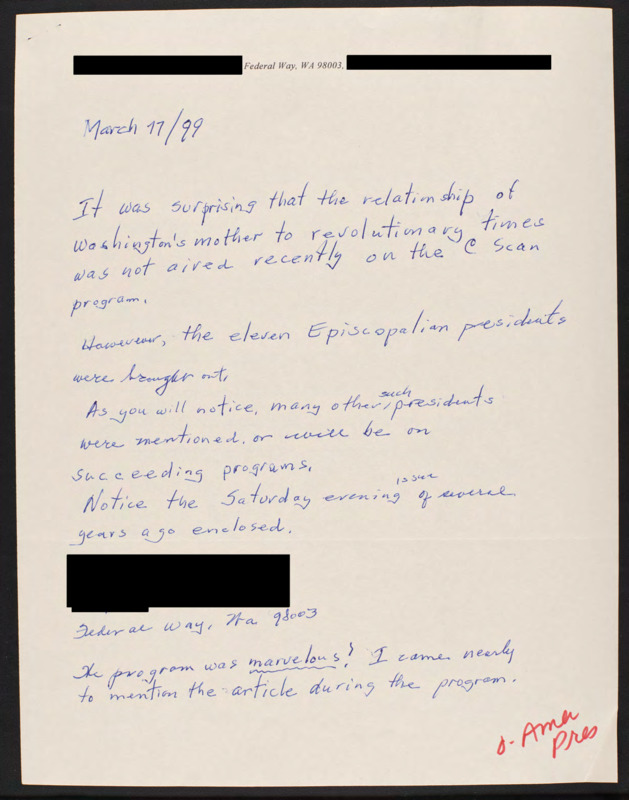 Federal Way, WA 98003,
March 17/99
It was surprising that the relationship of
Washington's mother to revolutionary times
was not aired recently on the C Scan
program.
However, the eleven Episcopalian presidents
were brought out.
As you will notice, many other such presidents
were mentioned, or will be on
succeeding programs.
Notice the Saturday evening issue of several
years ago enclosed.
Federal Way, Wa 98003
The program was marvelous! I came nearly
to mention the article during the program.
Amer
Pres